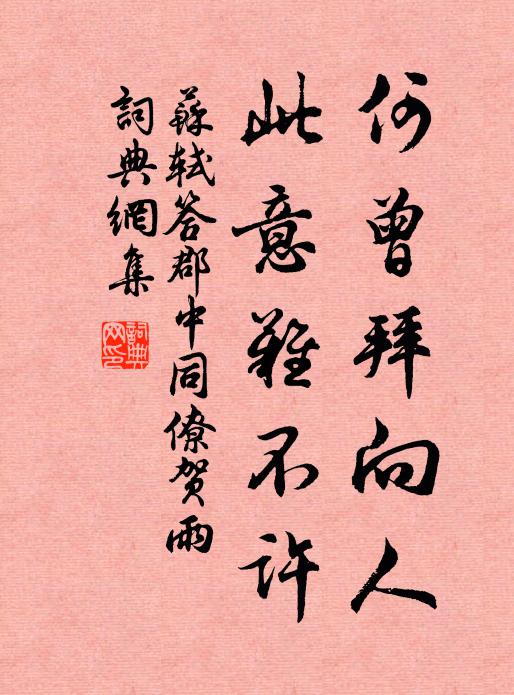 何曾拜向人
此意難不許
蘇軾答郡中同僚賀雨
詞典網集
詞典
网印